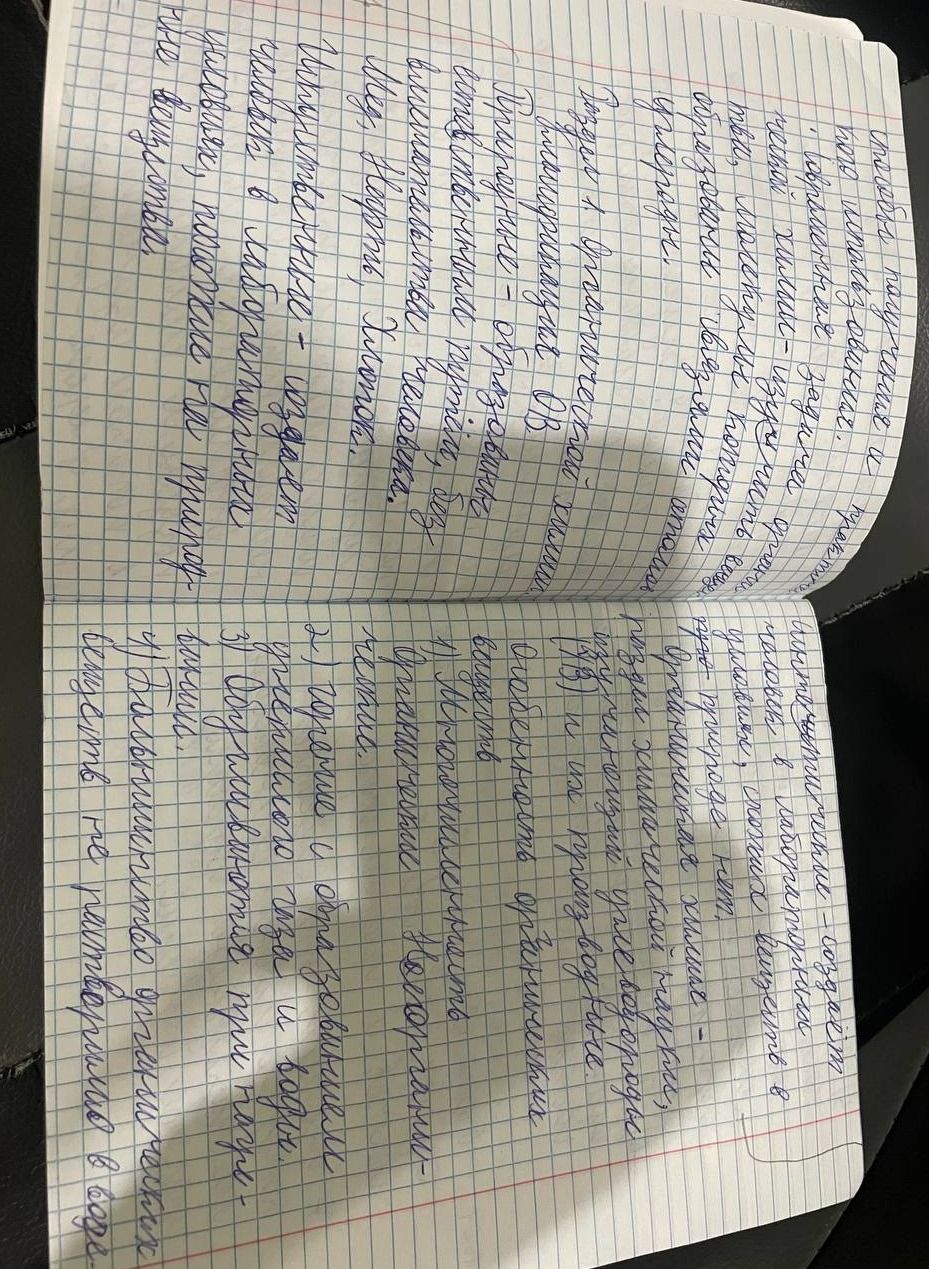 чтобы получение и практичес
кое использование.
Современная задача органи
ческой химии - изучить веще
тва, молекулы которых
образованы связями атома
углероды.
Раздел 1 Органической химии.
Классификация ОВ
Природные - образованы
естественным путём, без
вмешательства человека.
Мед, Нефть, Хлопок.
Искуственные - создаёт
человек в лабораторных
условиях, похожие на природ-
ные вещества.
Синтетические - создаёт
человек в лабораторных
условиях, таких веществ в
природе нет.
Органическая химия -
раздел химической науки,
изучающий углеводороды
(УВ) и их производные.
Особенность органических
веществ
1) Многочисленность
Органические Неоргани-
ческие.
2) Горение с образованием
углекислого газа и воды.
3) Обугливаются при нагре-
вании.
4) Большинство органических
веществ не растворимо в воде